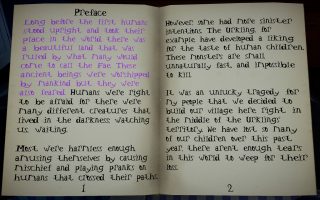 Preface
Long before the first human
stood upright and took their
place in the world there was
a beautiful land that was
ruled by what many would
come to call the Fae. These
ancient beings were worshipped
by mankind but they were
also feared. Humans were right
to be afraid for there were
many different creatures that
lived in the darkness watching
us, waiting.
Most were harmless enough,
amusing themselves by causing
mischief and playing pranks on
humans that crossed their paths.
1
However, some had more sinister
intentions. The Urkling, for
example have developed a liking
for the taste of human children.
These monsters are small
unnaturally fast, and impossible
to kill.
It was an unlucky tragedy for
my people that we decided to
build our village here right in
the middle of the Urklings
territory. We have lost so many
of our children over this past
year, there aren't enough tears
in this world to weep for their
loss.
2